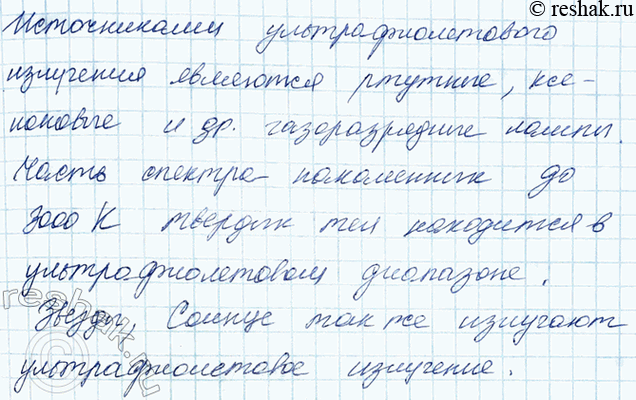 © reshak.ru
Источниками ультрафиолетового
излучения являются ртутные, ксе-
ноновые и др. газоразрядные лампы.
Часть спектра накаленных до
3000 К твердых тел находится в
ультрафиолетовом диапазоне.
Звезды, Солнце так же излучают
ультрафиолетовое излучение.
reshak.ru
©